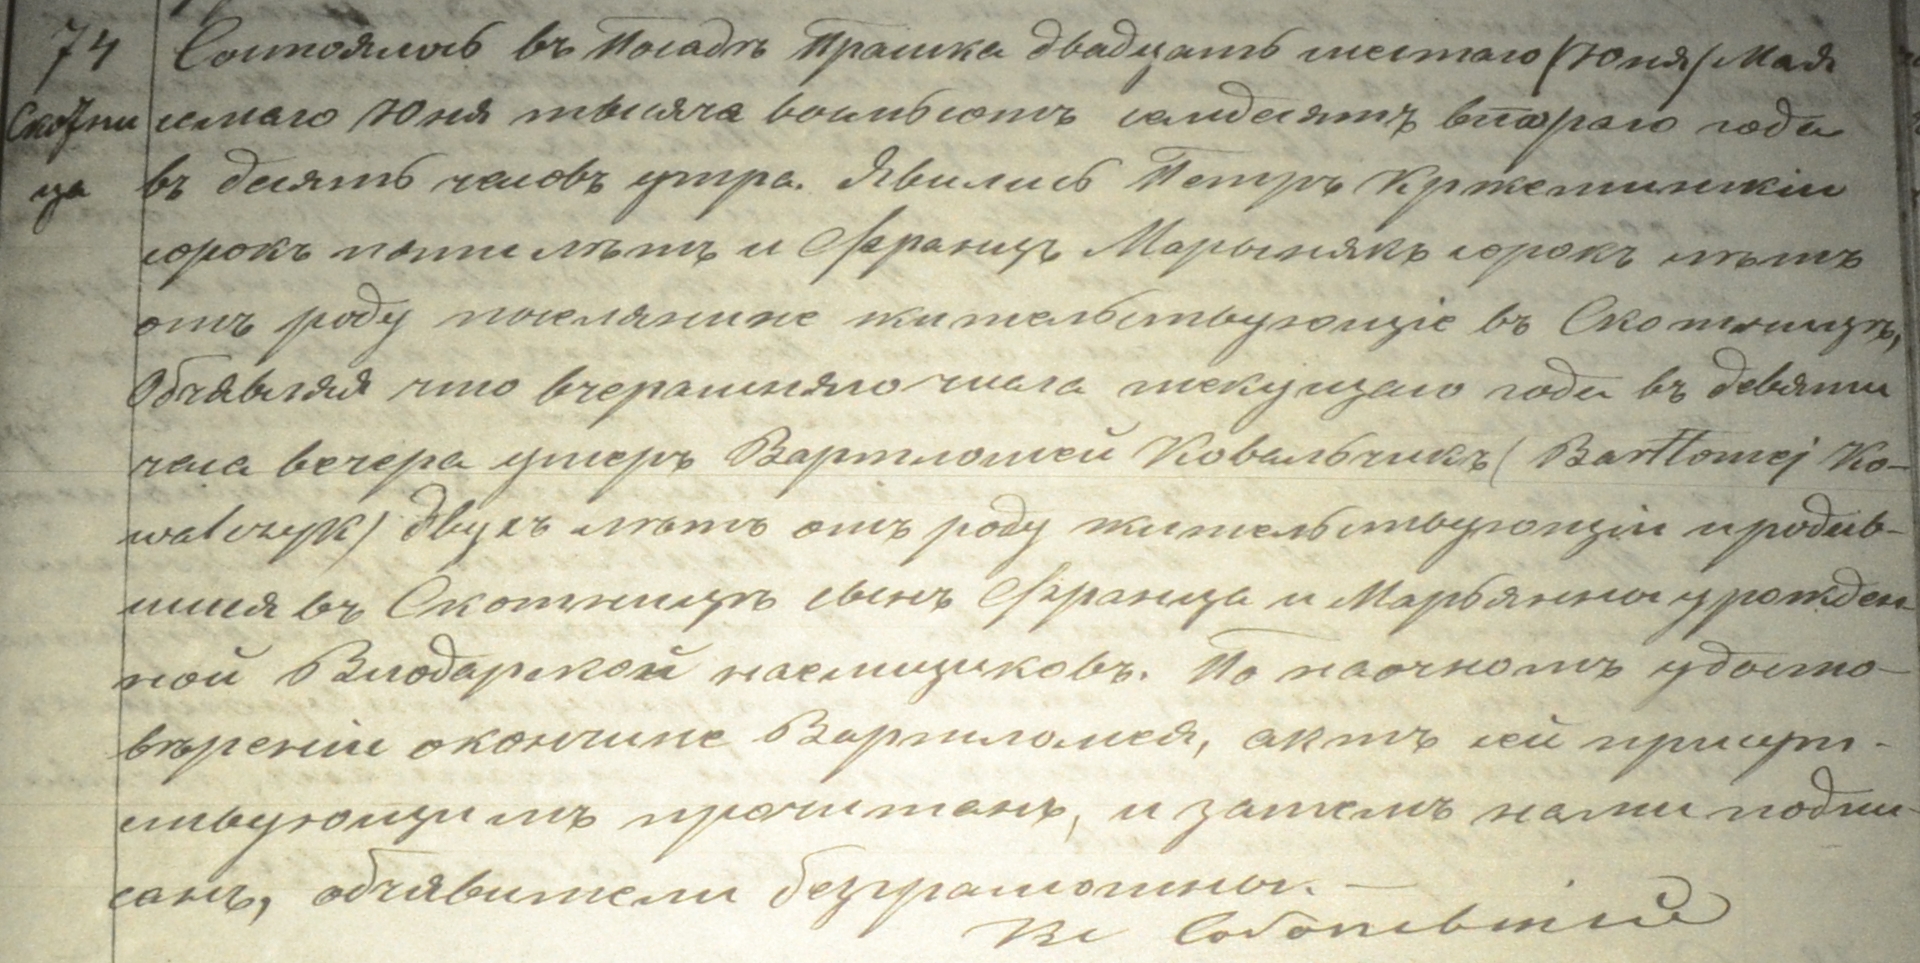 74
Скотни
ца
Состоялось въ Посадѣ Пражка двадцать шестаго (Юня) Мая
семаго Юня тысяча восмьсотъ семдесятъ втораго года
въ десять часовъ утра. Явились Петръ Кржетинскiи
сорокъ пяти лѣтъ и Францъ Марынякъ сорокъ лѣтъ
отъ роду поселянине жительствующiе въ Скотницѣ,
Объявляя что вчерашняго числа текущаго года въ девяти
часа вечера умеръ Вартломей Ковальчикъ (Bartłomiej Ko-
walczyk) двухъ лѣтъ отъ роду жительствующiи и родив-
шися въ Скотницѣ сынъ Франца и Марьянны урожден-
ной Влодарской наемщиковъ. По наочномъ удосто-
вѣренiи окончине Вартломея, актъ сей присут-
ствующимъ прочитанъ, и затемъ нами подпи-
санъ, объявители безграмотны. —
Кс